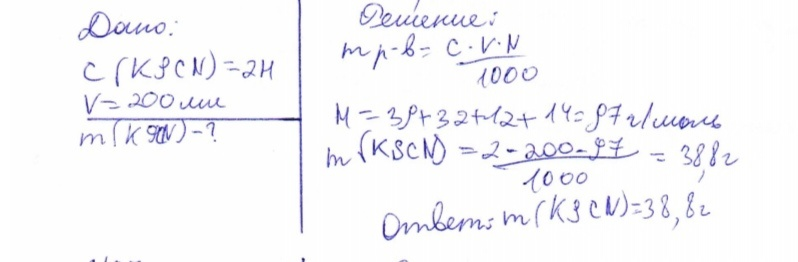 Дано:
C (KSCN) = 2Н
V = 200 мл
m (KSCN) - ?
Решение:
m р-в = C · V · N
1000
M = 39 + 32 + 12 + 14 = 97 г/моль
m (KSCN) = 2 - 200 - 97 = 38,8г
1000
Ответ: m (KSCN) = 38,8г